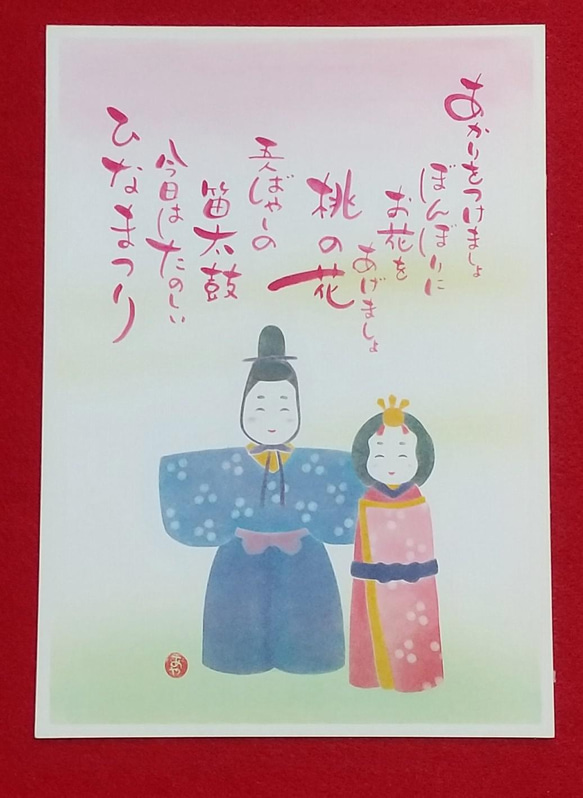 あかりをつけましょ
ぼんぼりに
お花を
あげましょ
桃の花
五人ばやしの
笛太鼓
今日はたのしい
ひなまつり